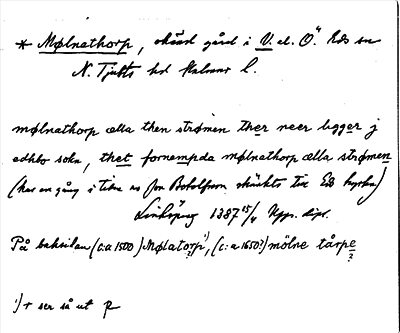 * Mølnathorp, okänd gård i V. el. Ö. Eds sn
N. Tjusts hd Kalmar l.
mølnathorp ælla then strømen ther neer ligger j
edhbo sokn, thet fornempda mølnathorp ælla strømen
(har en gång i tiden av fru Botolfson skänkts till Ed kyrka)
Linköping 1387 15/4 Upps. dipl.
På baksidan (c:a 1500) Mølatorp¹⁾, (c:a 1650?) mölne tårpe
¹⁾ r ser så ut